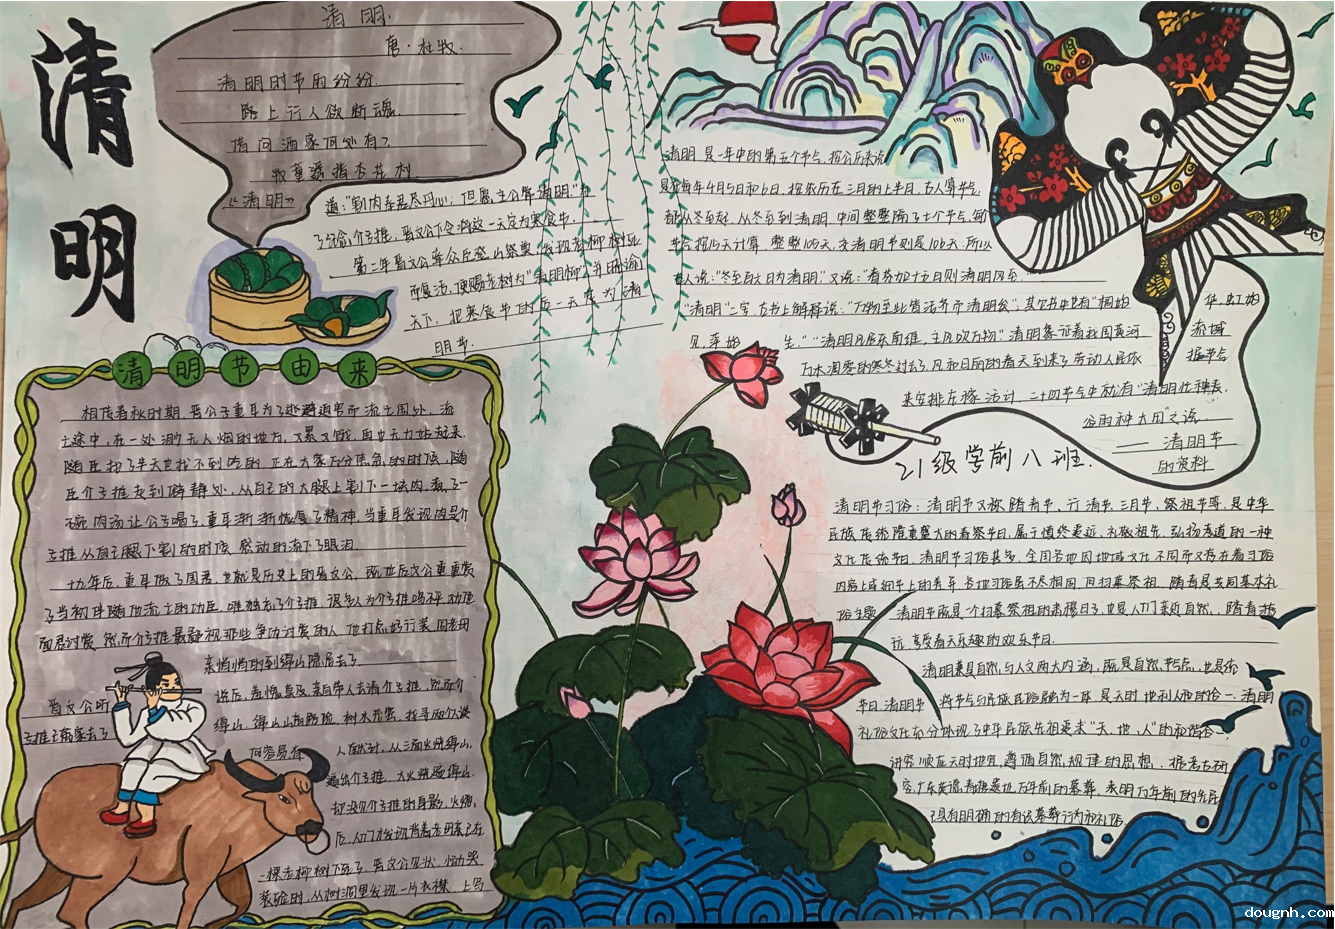 清明
清明
唐·杜牧.
清明时节雨纷纷.
路上行人欲断魂.
借问酒家何处有?
牧童遥指杏花村.
《清明》
道:"割肉奉君尽丹心,但愿主公常清明"为
了纪念介子推,晋文公下令将这一天定为寒食节.
第二年晋文公率众臣登山祭奠,发现老柳树死
而复活.便赐老柳树为"清明柳"并晓谕
天下,把寒食节的后一天定为清
明节.
清明节由来
相传春秋时期,晋公子重耳为了躲避迫害而流亡国外,流
亡途中,在一处渺无人烟的地方,又累又饿,再也无力站起来.
随臣找了半天也找不到吃的.正在大家万分焦急的时候,随
臣介子推走到僻静处,从自己的大腿上割下一块肉,煮了一
碗肉汤让公子喝了,重耳渐渐恢复了精神,当重耳发现肉是介
子推从自己腿下割的时候,感动的流下了眼泪.
十九年后,重耳做了国君,也就是历史上的晋文公.即位后文公重重赏
了当初伴随他流亡的功臣,唯独忘了介子推.很多人为介子推鸣不平,劝他
面君讨赏,然而介子推最鄙视那些争功讨赏的人,他打点好行装,同老母
亲悄悄的到绵山隐居去了.
晋文公听
说后,羞愧莫及,亲自带人去请介子推,然而介
子推已离家去了
绵山.绵山山高路险,树木茂密,找寻两个人谈
何容易,有
人献计,从三面火烧绵山,
逼出介子推.大火烧遍绵山,
却没见介子推的身影,火熄
后,人们才发现背着老母亲已在
一棵老柳树下死了.晋文公见状,恸哭
装殓时,从树洞里发现一片衣襟,上写
清明是一年中的第五个节点,按公历来说
是在每年4月5日和6日,按农历在三月的上半月,古人算节气
都从冬至起,从冬至到清明,中间整整隔了七个节点,每
节气按15天计算,整整105天,交清明节则是106天.所以
古人说:"冬至百六日为清明."又说:"春分加十五日则清明风至."
"清明"二字,古书上解释说:"万物至此皆洁齐而清明矣";其它书中也有"桐始
华,虹始
见,萍始
生."
"清明风居东南维,主风吹万物."清明象征着我国黄河
流域
万木凋零的寒冬过去了,风和日丽的春天到来了,劳动人民依
据节气
来安排农稼活计.二十四节气中就有"清明忙种麦,
谷雨种大田"之说.
——清明节
的资料
21级学前八班.
清明节习俗:清明节又称踏青节、行清节、三月节、祭祖节等,是中华
民族传统隆重盛大的春祭节日,属于慎终追远、礼敬祖先、弘扬孝道的一种
文化传统节日.清明节习俗甚多,全国各地因地域文化不同而又存在着习俗
内容上或细节上的差异,各地习俗虽不尽相同,但扫墓祭祖、踏青是共同基本礼
俗主题.清明节既是一个扫墓祭祖的肃穆日子,也是人们亲近自然、踏青游
玩、享受春天乐趣的欢乐节日.
清明兼具自然与人文两大内涵,既是自然节气点,也是传
节日,清明节将节气与民族民俗融为一体,是天时地利人和的合一.清明
礼俗文化充分体现了中华民族先祖追求"天、地、人"的和谐合一,
讲究顺应天时地宜、遵循自然规律的思想.据考古研
究,广东英德青塘遗址万年前的墓葬,表明万年前的先民
已具有明确的有意墓葬行为和礼俗.
dougnh.com